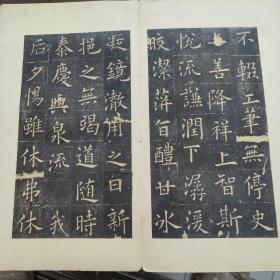 不輟工筆無停史
善降祥上智斯
悅流謙潤下潺湲
皎潔蓱旨醴甘冰
凝鏡澈用之日新
挹之無竭道随時
泰慶與泉流我
后夕惕雖休弗休